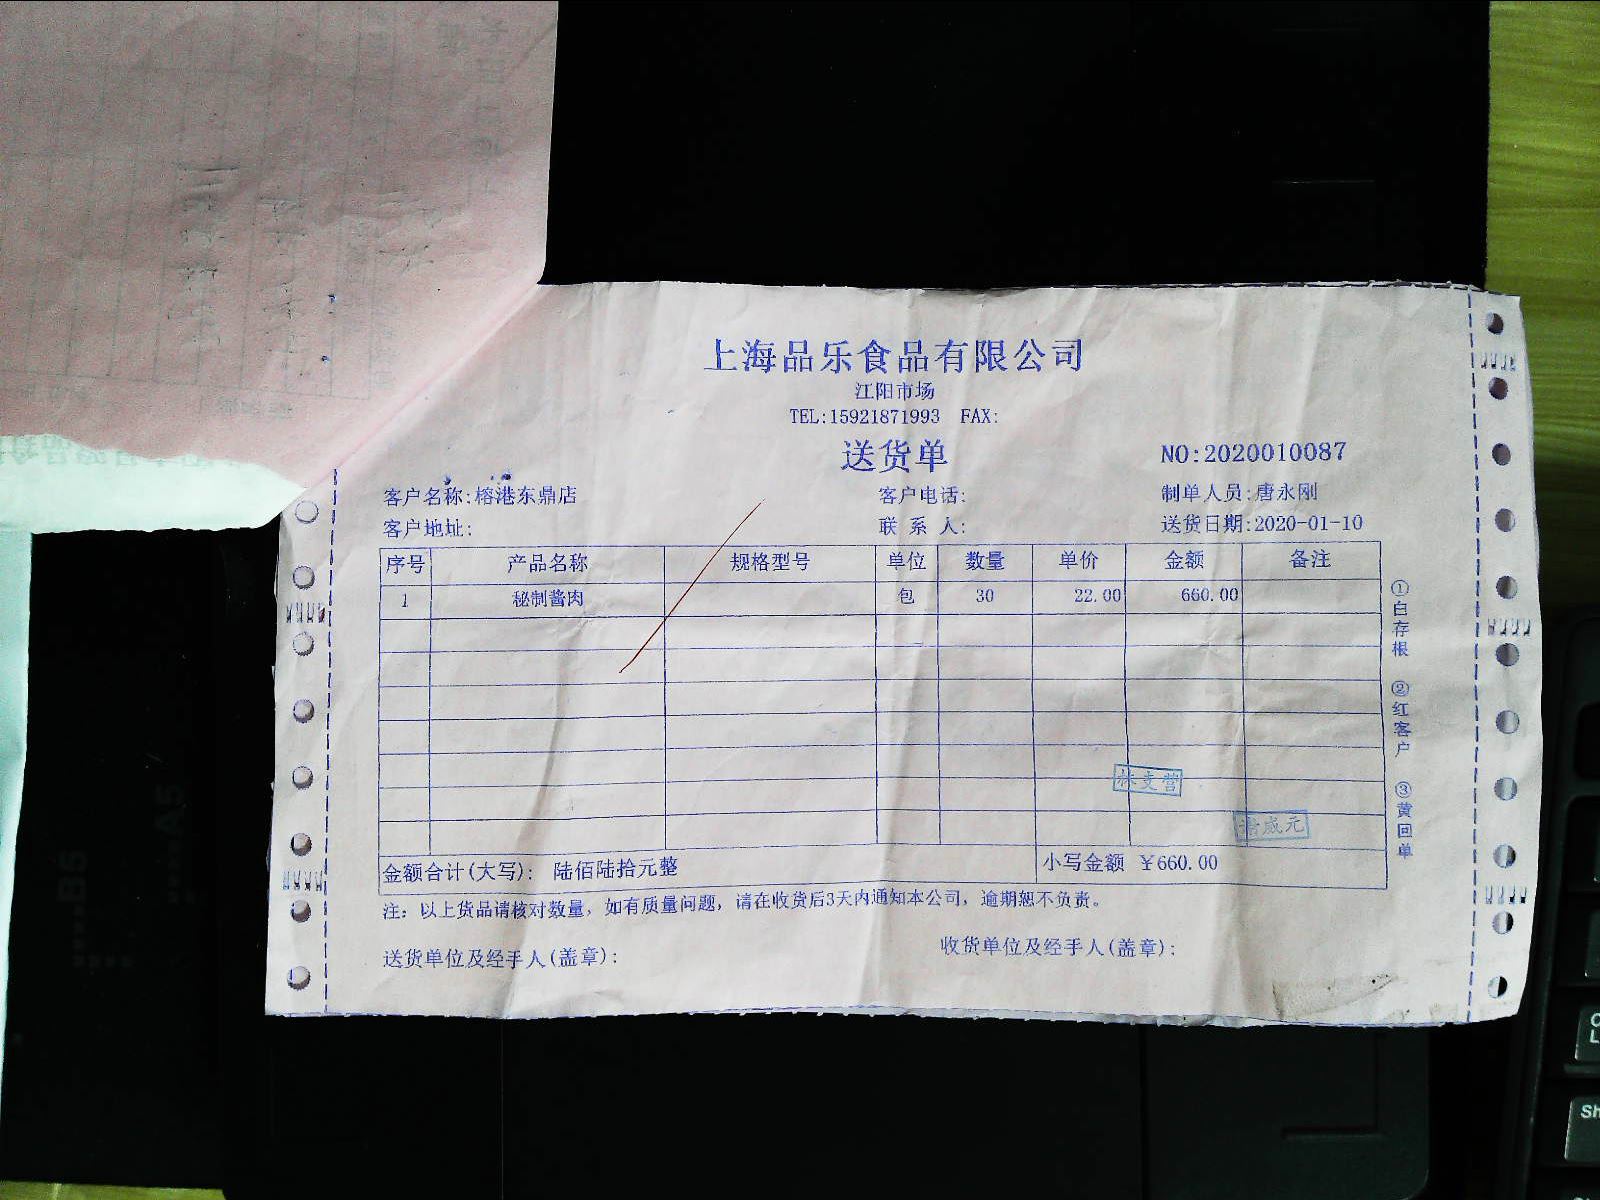 上海品乐食品有限公司
江阳市场
TEL:15921871993 FAX:
送货单
NO:2020010087
客户名称:榕港东鼎店 客户电话: 制单人员:唐永刚
客户地址: 联系人: 送货日期:2020-01-10
序号 产品名称 规格型号 单位 数量 单价 金额 备注
1 秘制酱肉 包 30 22.00 660.00
金额合计(大写): 陆佰陆拾元整 小写金额 ¥660.00
注: 以上货品请核对数量, 如有质量问题, 请在收货后3天内通知本公司, 逾期恕不负责。
送货单位及经手人(盖章): 收货单位及经手人(盖章):
①白存根 ②红客户 ③黄回单
林支营
威元
B5
A5